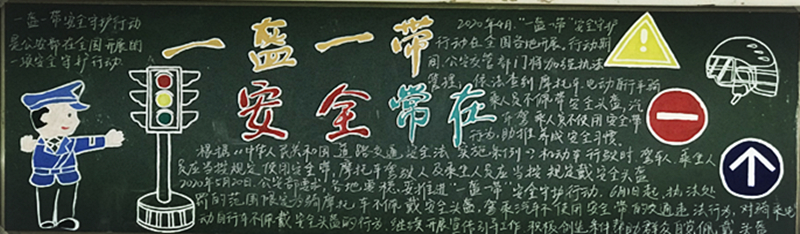 一盔一带安全守护行动
是公安部在全国开展的
一项安全守护行动.
一盔一带
安全常在
2020年4月,"一盔一带"安全守护
行动在全国各地开展,行动期
间,公安交管部门将加强执法
管理,依法查纠摩托车、电动自行车骑
乘人员不佩带安全头盔,汽
车驾乘人员不使用安全带
行为,助推养成安全习惯.
根据《中华人民共和国道路交通安全法》实施条例:机动车行驶时,驾驶人、乘坐人
员应当按规定使用安全带,摩托车驾驶人及乘坐人员应当按规定戴安全头盔
2020年5月20日,公安部要求,各地要稳妥推进"一盔一带"安全守护行动.6月1日起,执法处
罚的范围限定为骑摩托车不佩戴安全头盔,驾乘汽车不使用安全带的交通违法行为,对骑乘电
动自行车不佩戴安全头盔的行为,继续开展宣传引导工作,积极创造条件帮助群众自觉佩戴头盔